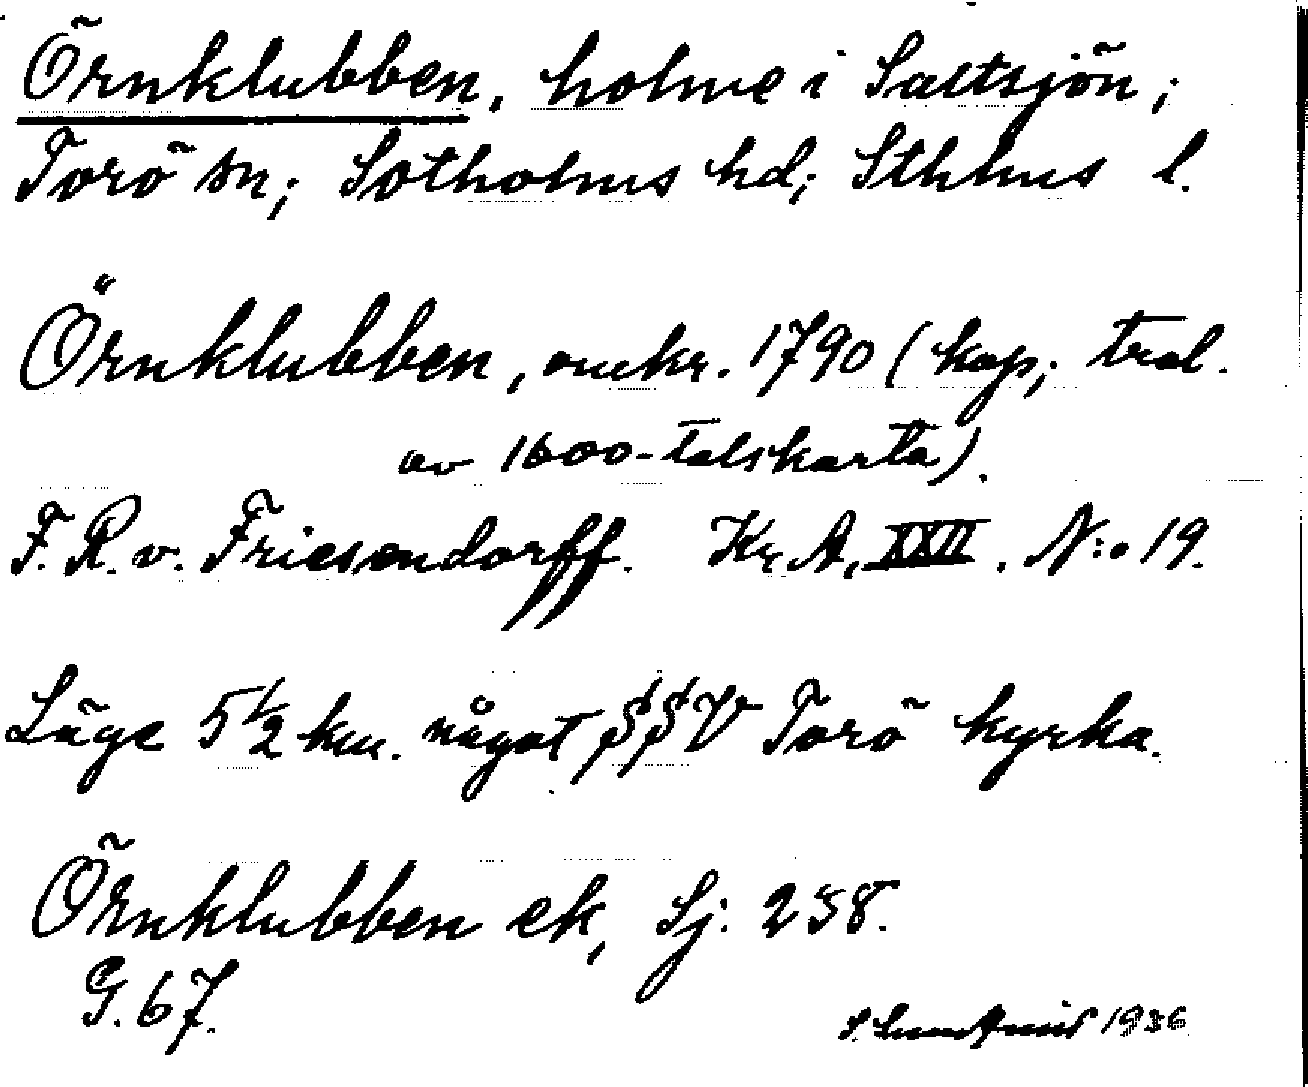 Örnklubben, holme i Saltsjön;
Torö sn; Sotholms hd; Sthlms l.
Örnklubben, omkr. 1790 (kop; trol.
av 1600-talskarta).
F. R. v. Friesendorff. Kr. A, XXII. N:o 19.
Läge 5 1/2 km. något SSV Torö kyrka.
Örnklubben ek, Sj: 238.
G. 67.
1936